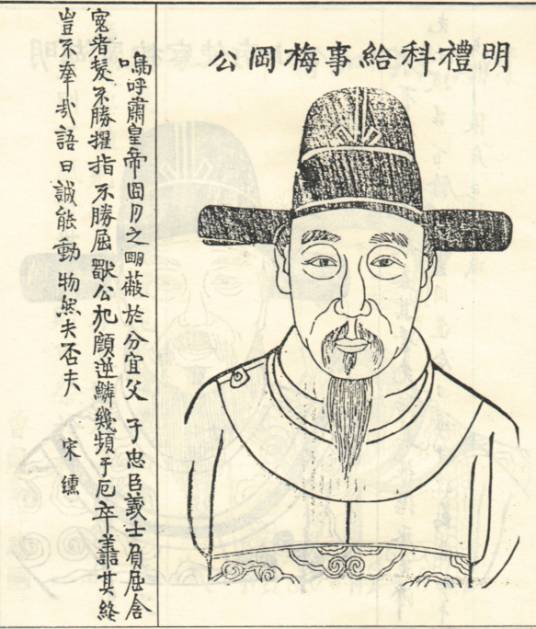 明禮科給事梅岡公
嗚呼肅皇帝囧月之明蔽於分宜父子忠臣義士負屈含
寃者髮不勝擢指不勝屈獻公犯顏逆鱗幾頻于厄卒善其終
豈不奉弍語曰誠能動物然夫否夫　宋纁